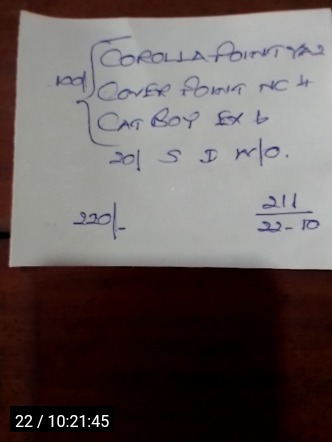 COROLLA POINT YA2
100/ COVER POINT NC 4
CAT BOY EX b
20/ S D W/O.
220/-
211
22-10
22 / 10:21:45